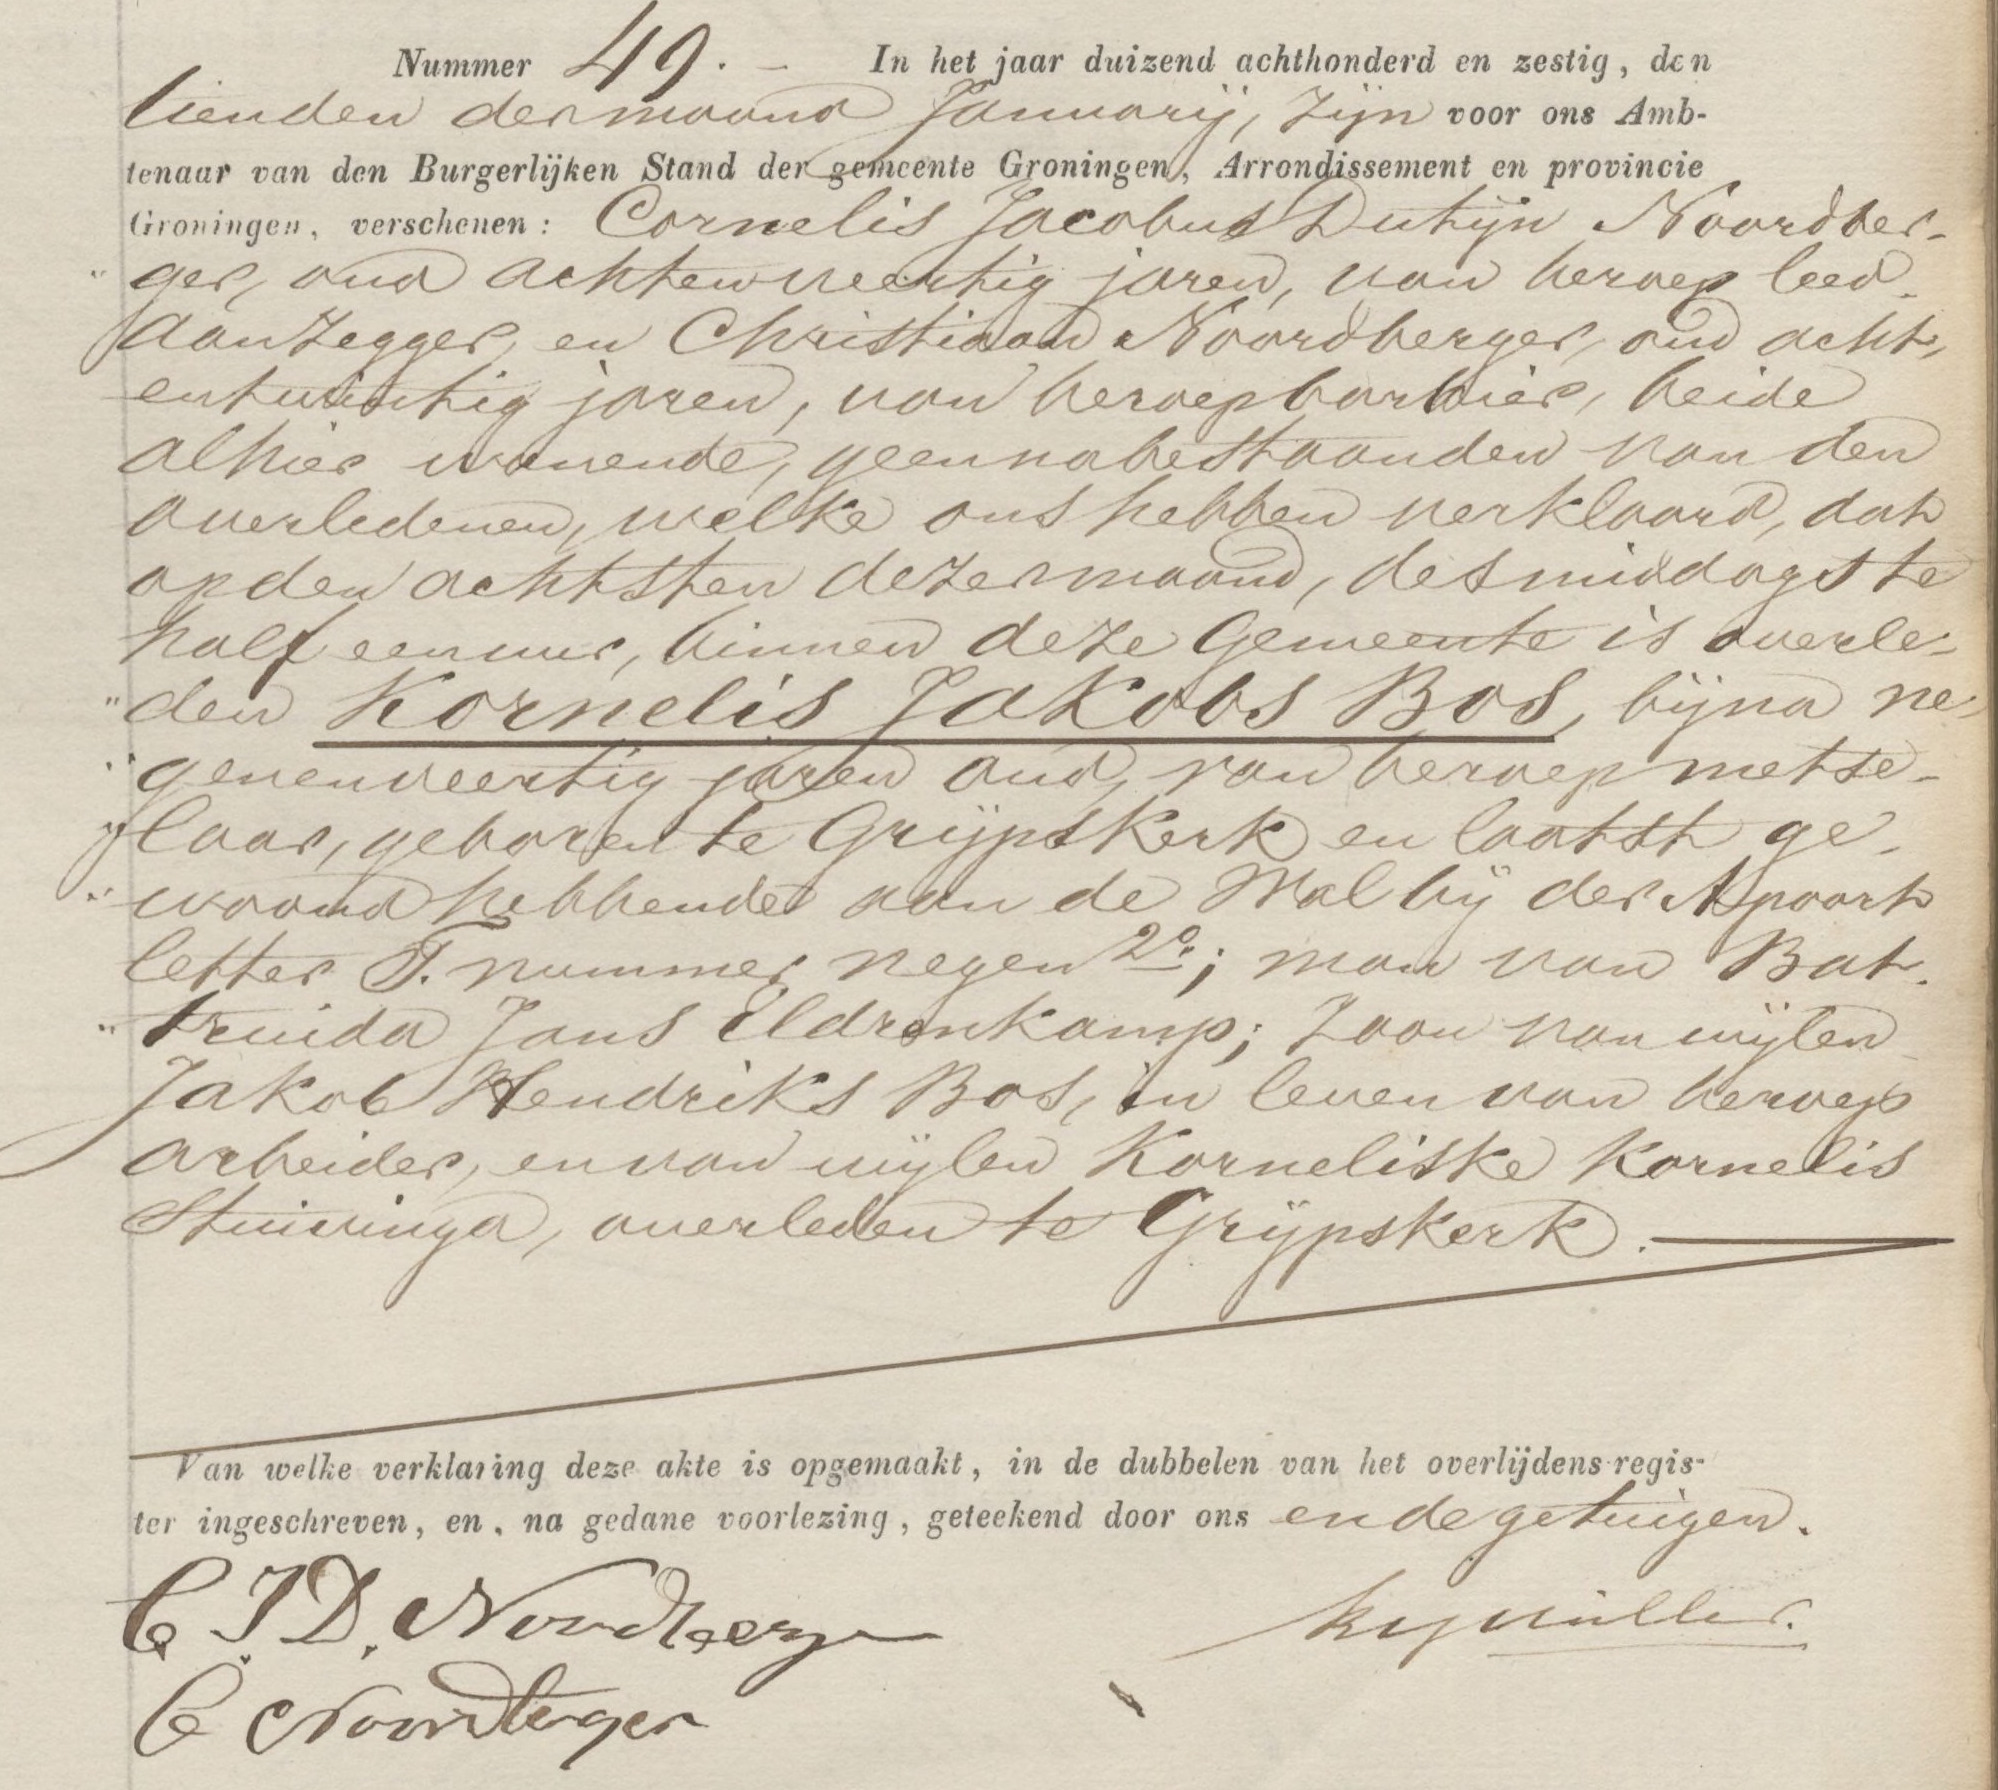 Nummer 49. — In het jaar duizend achthonderd en zestig, den
tienden der maand Januarij, zijn voor ons Amb-
tenaar van den Burgerlijken Stand der gemeente Groningen, Arrondissement en provincie
Groningen, verschenen: Cornelis Jacobus Dutijn Noordber-
ger, oud achtenveertig jaren, van beroep leed-
aanzegger, en Christiaan Noordberger, oud acht-
entwintig jaren, van beroep barbier, beide
alhier wonende, geen nabestaanden van den
overledenen, welke ons hebben verklaard, dat
op den achtsten dezer maand, des middags te
half een uur, binnen deze Gemeente is overle-
den Kornelis Jakobs Bos, bijna ne-
genenveertig jaren oud, van beroep metse-
laar, geboren te Grijpskerk en laatst ge-
woond hebbende aan de Wal bij der Apoort
letter T. nummer negen 2º; man van Bat-
truida Jans Eldrenkamp; zoon van wijlen
Jakob Hendriks Bos, in leven van beroep
arbeider, en van wijlen Korneliske Kornelis
Stuivinga, overleden te Grijpskerk.
Van welke verklaring deze akte is opgemaakt, in de dubbelen van het overlijdens-regis-
ter ingeschreven, en, na gedane voorlezing, geteekend door ons en de getuigen.
C. J. D. Noordberger
C Noordberger